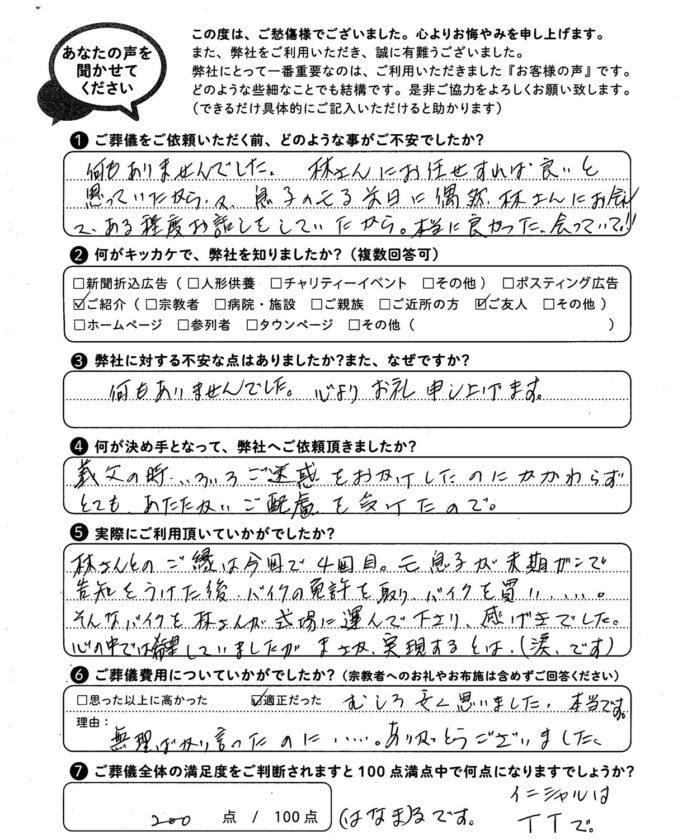 あなたの声を
聞かせて
ください
この度は、ご愁傷様でございました。心よりお悔やみを申し上げます。
また、弊社をご利用いただき、誠に有難うございました。
弊社にとって一番重要なのは、ご利用いただきました『お客様の声』です。
どのような些細なことでも結構です。是非ご協力をよろしくお願い致します。
(できるだけ具体的にご記入いただけると助かります)
❶ ご葬儀をご依頼いただく前、どのような事がご不安でしたか?
何もありませんでした。 林さんにお任せすれば良いと
思っていたから、又、息子の亡る前日に偶然、林さんにお会い
て、ある程度お話しをしていたから。本当に良かった、会っていて!!
❷ 何がキッカケで、弊社を知りましたか?(複数回答可)
□新聞折込広告 (□人形供養 □チャリティーイベント □その他) □ポスティング広告
☑ご紹介 (□宗教者 □病院・施設 □ご親族 □ご近所の方 ☑ご友人 □その他)
□ホームページ □参列者 □タウンページ □その他 ( )
❸ 弊社に対する不安な点はありましたか?また、なぜですか?
何もありませんでした。心より お礼 申し上げます。
❹ 何が決め手となって、弊社へご依頼頂きましたか?
義父の時、いろいろご迷惑をおかけしたのにかかわらず
とても、あたたかいご配慮を受けたので。
❺ 実際にご利用頂いていかがでしたか?
林さんとのご縁は今回で4回目。 息子が末期ガンで
告知をうけた後、バイクの免許を取り、バイクを買い.....。
そんなバイクを林さんが式場に運んで下さり、感げきでした。
心の中では希望していましたが まさか、実現するとは、(涙、です)
❻ ご葬儀費用についていかがでしたか?(宗教者へのお礼やお布施は含めずご回答ください)
□思った以上に高かった ☑適正だった むしろ安く思いました。本当です。
理由:
無理ばかり言ったのに.....。ありがとうございました、
❼ ご葬儀全体の満足度をご判断されますと100点満点中で何点になりますでしょうか?
200 点 / 100点 (はなまる)です。
イニシャルは
TTで。